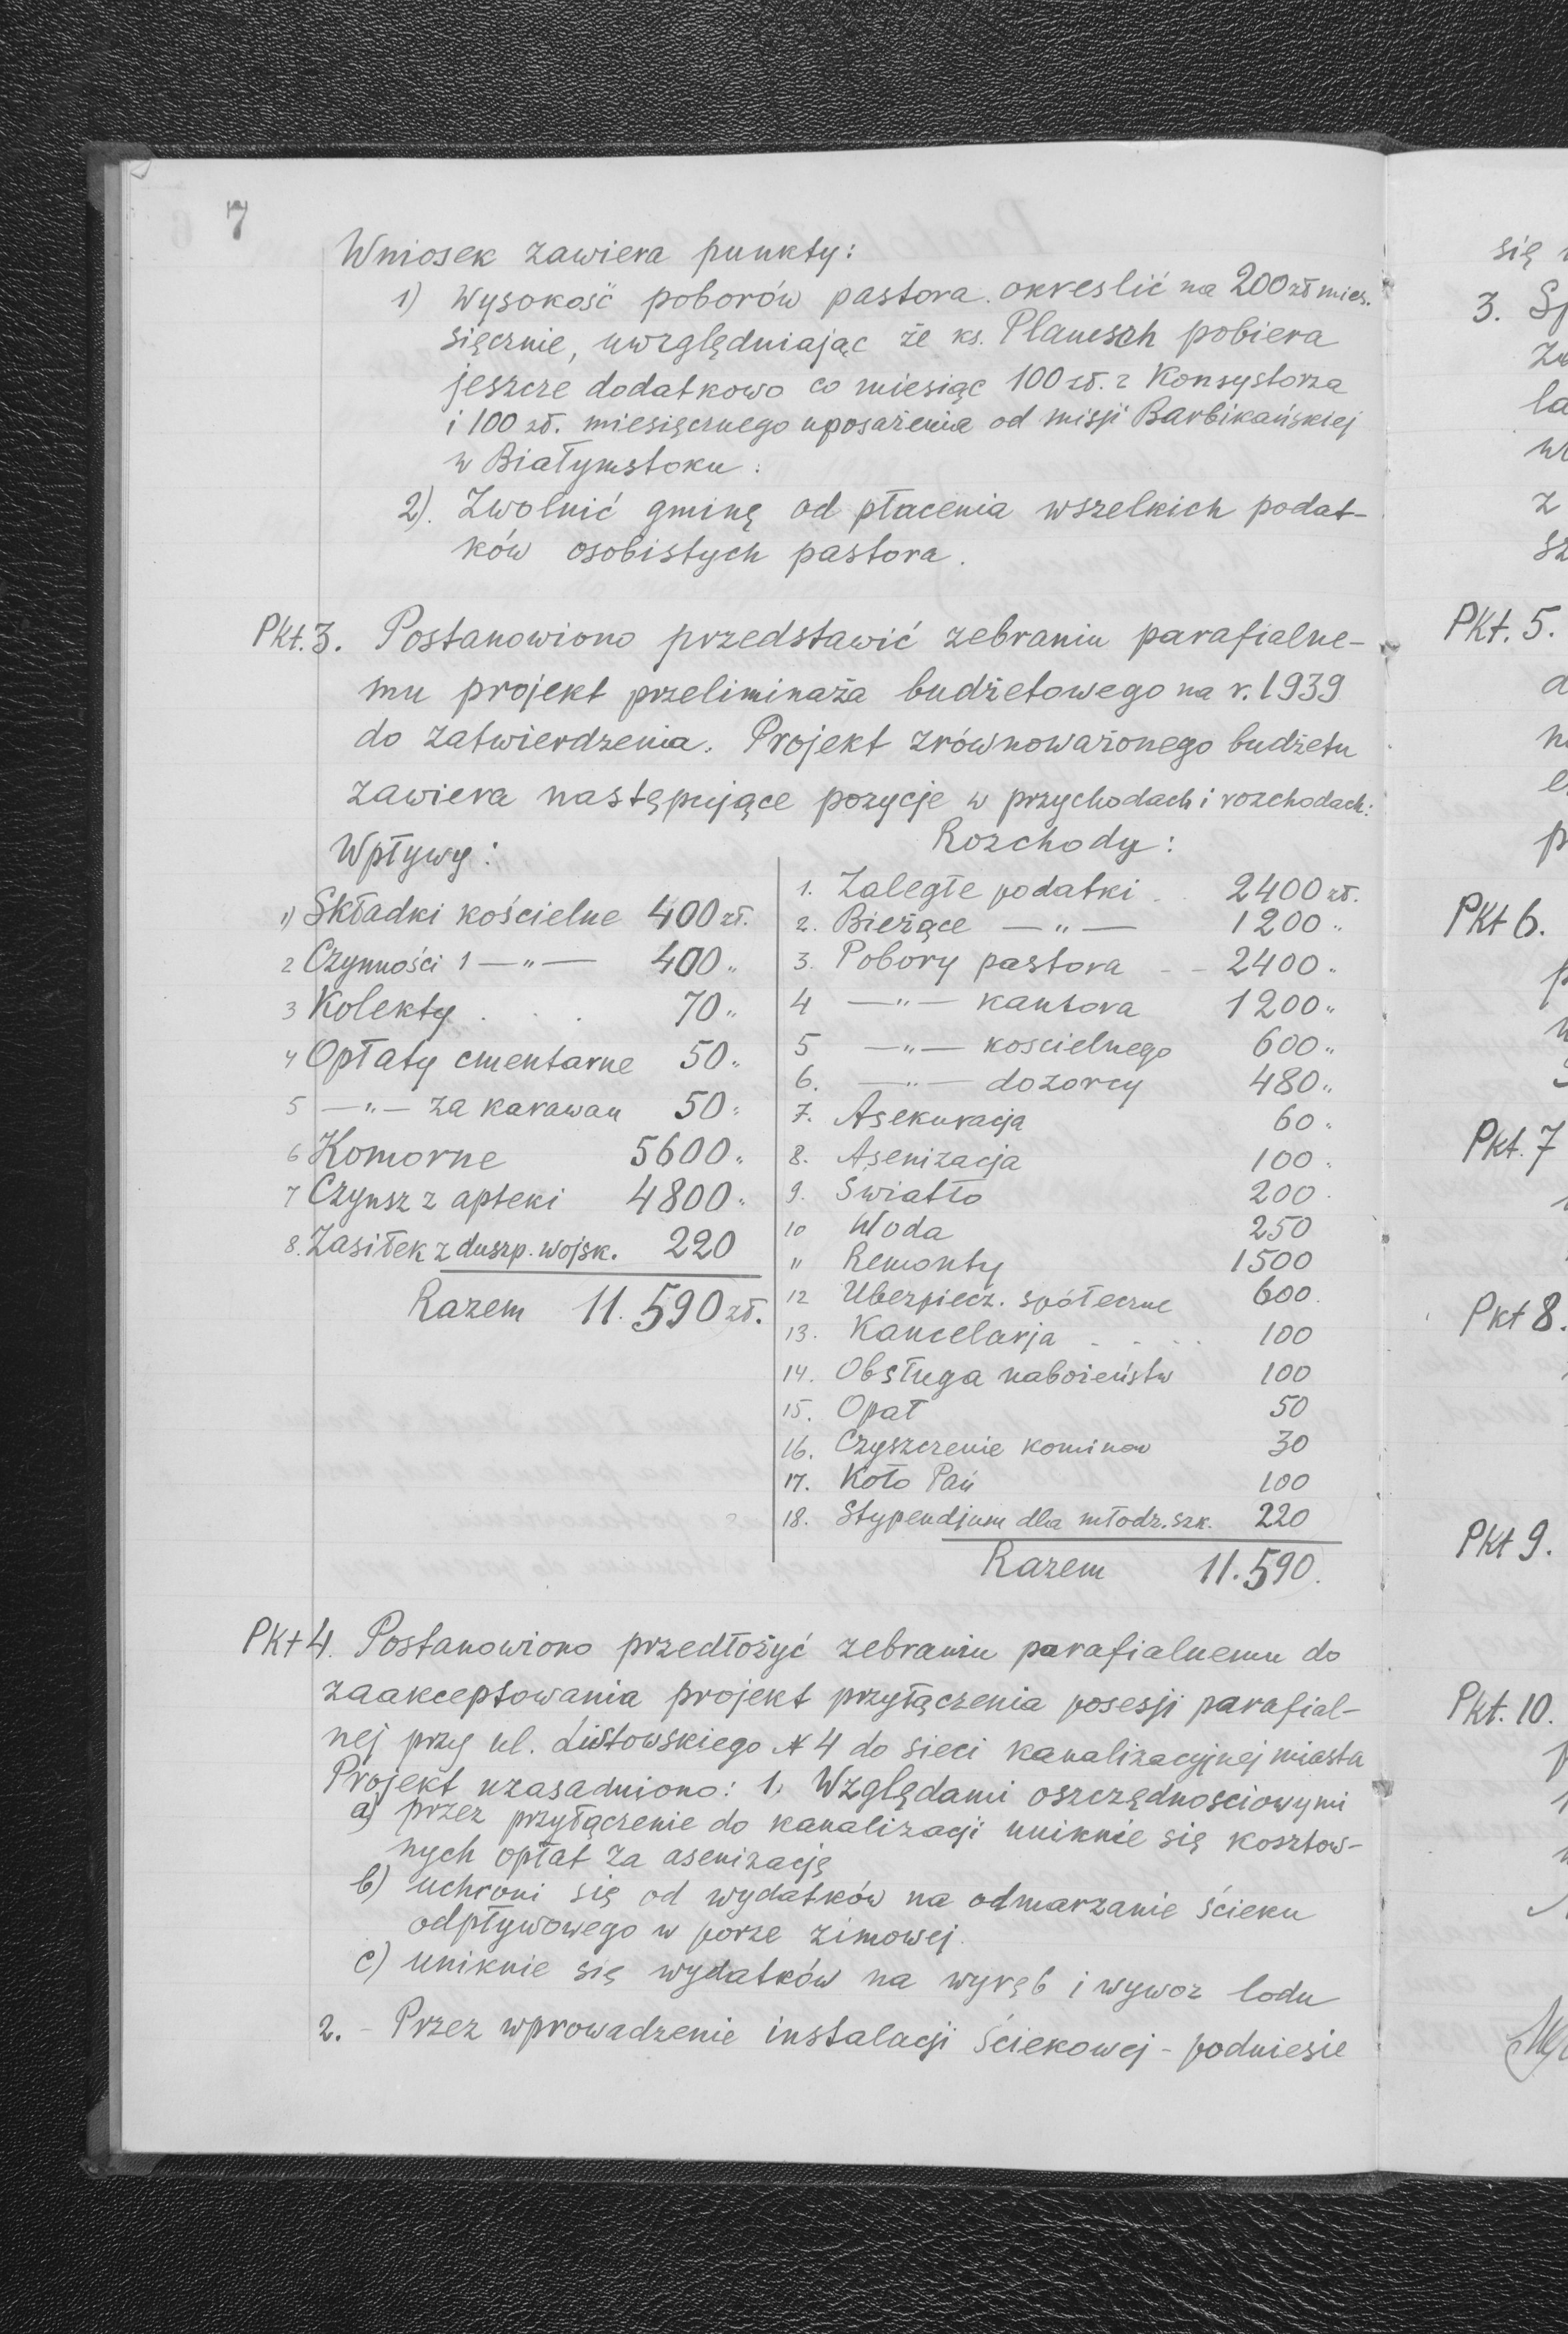 7
Wniosek zawiera punkty:
1) Wysokość poborów pastora. okreslić na 200 zł mies.
sięcznie, uwzględniając że ks. Plamsch pobiera
jeszcze dodatkowo co miesiąc 100 zł. z Konsystorza
i 100 zł. miesięcznego uposażenia od misji Barbikańskiej
w Białymstoku.
2). Zwolnić gminę od płacenia wszelkich podat-
ków osobistych pastora.
Pkt. 3. Postanowiono przedstawić zebraniu parafialne-
mu projekt przeliminaża budżetowego na r. 1939
do zatwierdzenia. Projekt zrównoważonego budżetu
zawiera następujące pozycje w przychodach i rozchodach:
Wpływy:
1) Składki kościelne 400 zł.
2 Czynności 1 — " — 400 "
3 Kolekty . . . 70 "
4 Opłaty cmentarne 50 "
5 — " — za karawan 50 "
6 Komorne 5600 "
7 Czynsz z apteki 4800 "
8. Zasiłek z duszp. wojsk. 220
Razem 11.590 zł.
Rozchody:
1. Zaległe podatki . . 2400 zł.
2. Bieżące — " — 1200 "
3. Pobory pastora - - 2400 "
4 — " — kantora 1200 "
5 — " — koscielnego 600 "
6. — " — dozorcy 480 "
7. Asekuracja 60 "
8. Asenizacja 100 "
9. Światło 200
10 Woda 250
11 Remonty 1500
12 Ubezpiecz. społeczne 600
13. Kancelarja . . . . 100
14. Obsługa nabożeństw 100
15. Opał 50
16. Czyszczenie kominow 30
17. Koło Pań 100
18. Stypendjum dla młodz. szk. 220
Razem 11.590.
Pkt 4. Postanowiono przedłożyć zebraniu parafialnemu do
zaakceptowania projekt przyłączenia posesji parafial-
nej przy ul. Listowskiego № 4 do sieci kanalizacyjnej miasta
Projekt uzasadniono: 1. Względami oszczędnościowymi
a) przez przyłączenie do kanalizacji uniknie się kosztow-
nych opłat za asenizację
b) uchroni się od wydatków na odmarzanie ścieku
odpływowego w porze zimowej.
c) uniknie się wydatków na wyręb i wywoz lodu
2. - Przez wprowadzenie instalacji ściekowej - podniesie
się
3. Sp
la
z
sz
Pkt. 5.
Pkt 6.
Pkt. 7
Pkt 8.
Pkt 9.
Pkt. 10.